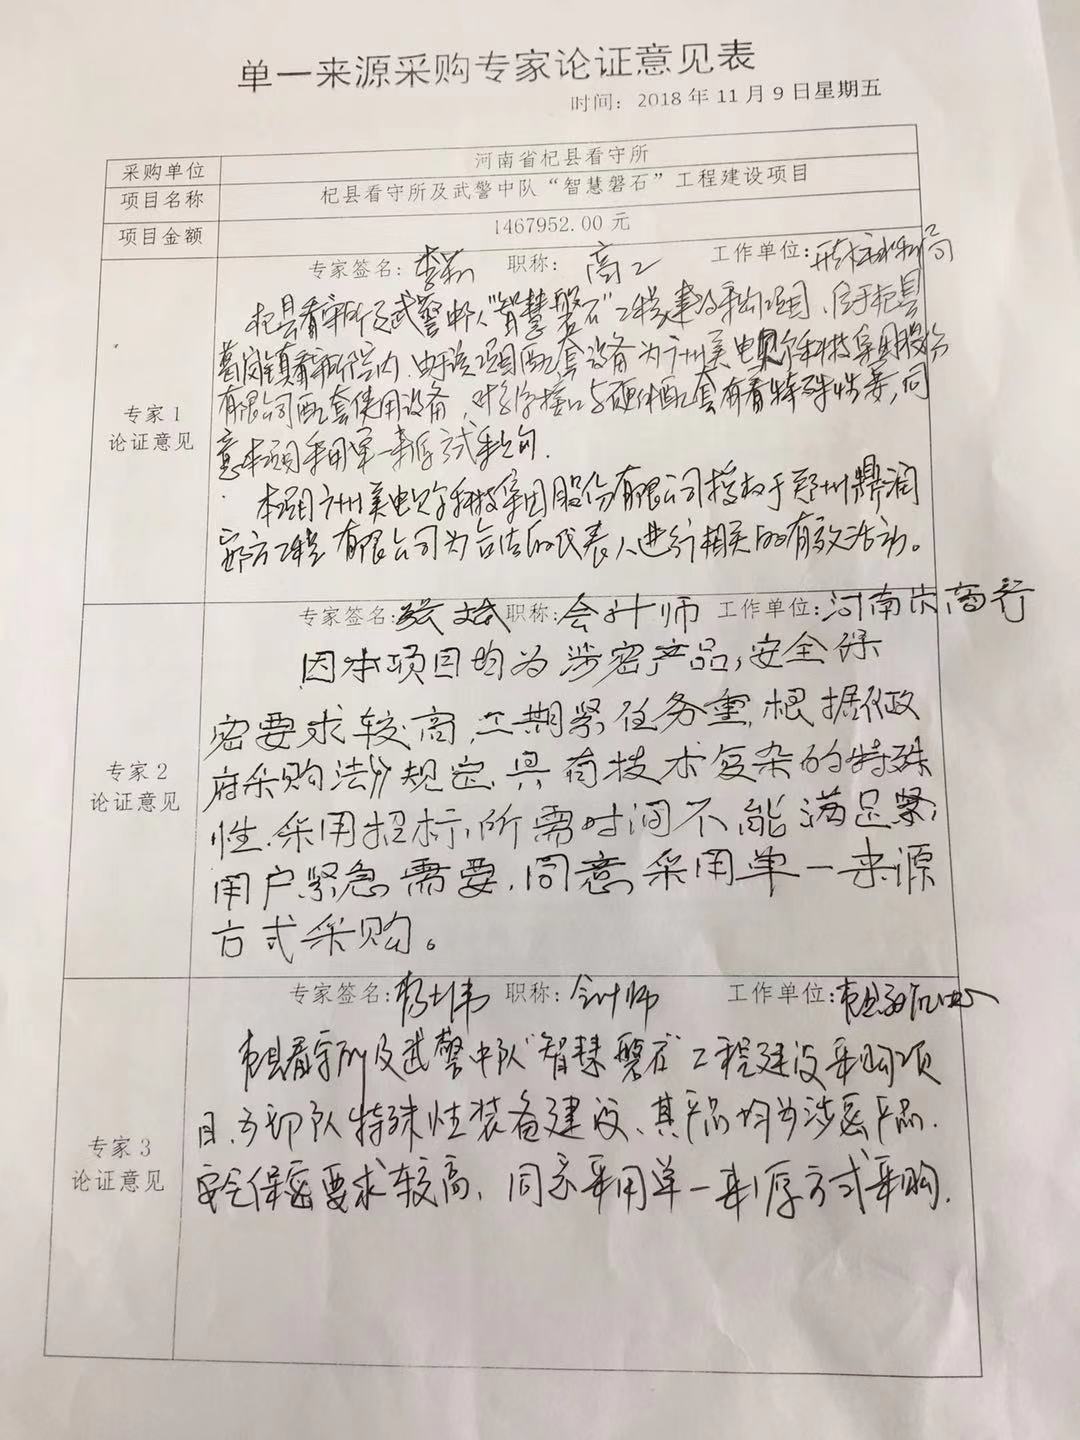 单一来源采购专家论证意见表
时间：2018年11月9日星期五
采购单位 河南省杞县看守所
项目名称 杞县看守所及武警中队“智慧磐石”工程建设项目
项目金额 1467952.00 元
专家签名: 职称: 高工 工作单位: 开封市水利局
专家1
论证意见
杞县看守所及武警中队“智慧磐石”工程建设采购项目、位于杞县
葛岗镇看守所院内。由于该项目配套设备为广州美电贝尔科技集团股份
有限公司配套使用设备，对于接口与硬件配套有着特殊性要，同
意本项目采用单一来源方式采购.
本项目广州美电贝尔科技集团股份有限公司授权于郑州鼎润
工程有限公司为合法的代表人进行相关的有效活动。
专家签名: 职称: 会计师 工作单位: 河南农商行
专家2
论证意见
因本项目均为涉密产品,安全保
密要求较高,工期紧任务重,根据《政
府采购法》规定,具有技术复杂的特殊
性.采用招标所需时间不能满足
用户紧急需要,同意采用单一来源
方式采购。
专家签名: 职称: 会计师 工作单位:
专家3
论证意见
杞县看守所及武警中队“智慧磐石”工程建设采购项
目,为部队特殊性装备建设、其产品均为涉密产品.
安全保密要求较高,同意采用单一来源方式采购.